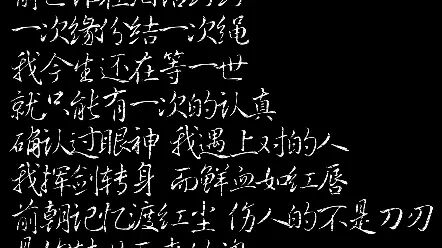 一次缘份结一次绳
我今生还在等一世
就只能有一次的认真
确认过眼神 我遇上对的人
我挥剑转身 而鲜血如红唇
前朝记忆渡红尘 伤人的不是刀刃